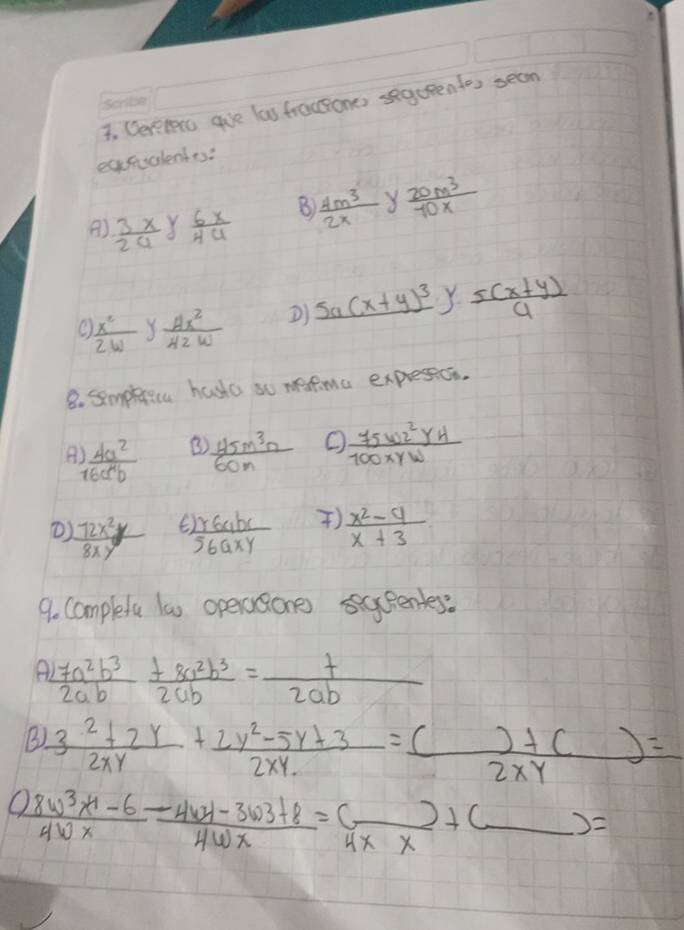 Scribe
7. Verifica que las fracciones siguientes sean
equivalentes:
A) 3x/2a y 6x/4a B) 4m³/2x y 20m³/10x
C) x²/2w y 4x²/42w D) 5a(x+y)³ y 5(x+y)/a
8. Simplifica hasta su mínima expresión.
A) 4a²/16a⁴b B) 45m³n/60m C) 75wz²y4/100xyw
D) 72x²y/8xy E) 16abc/56axy F) x²-9/x+3
9. Completa las operaciones siguientes:
A) 7a²b³/2ab + 8a²b³/2ab = +/2ab
B) 3²+2y/2xy + 2y²-5y+3/2xy. = ( )+( )/2xy =
C) 8w³x4-6/4wx - 4w4-3w3+8/4wx = ( )/4x x + ( ) =